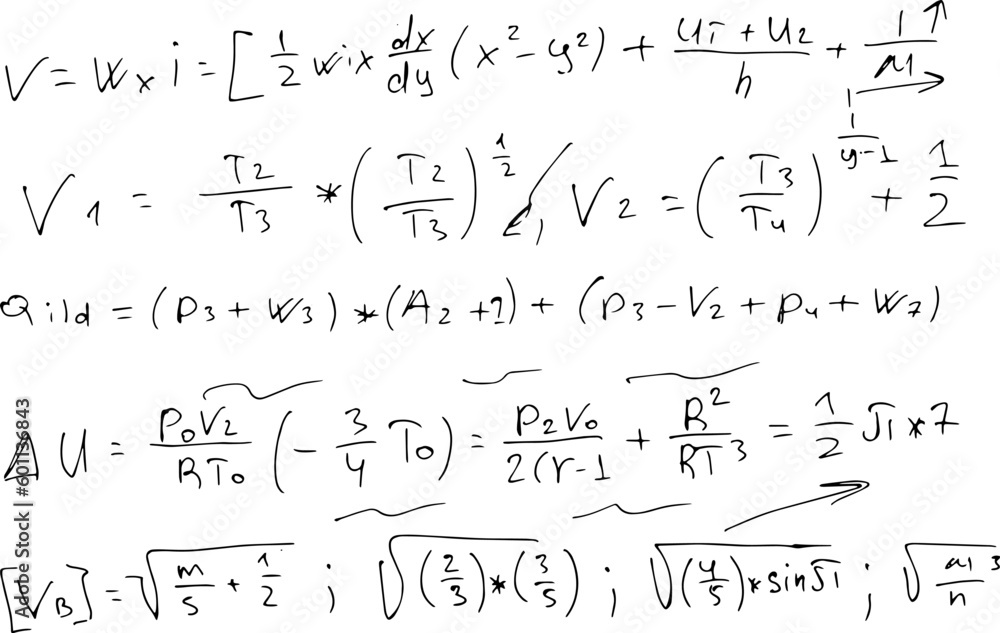 V = W x i = [ 1/2 wix dx/dy (x² - y²) + (Ui + U2)/h + 1/M1
V1 = T2/T3 * (T2/T3)^1/2, V2 = (T3/T4)^1/(y-1) + 1/2
Qild = (P3 + W3) * (A2 + 1) + (P3 - V2 + P4 + W7)
ΔU = P0V2/RT0 (- 3/4 T0) = P2V0/2(r-1 + R²/RT³ = 1/2 Ji * 7
[VB] = √(m/s + 1/2) ; √((2/3)*(3/5)) ; √((4/5)*sinJi) ; √(M1³/n)
Adobe Stock | #601136843